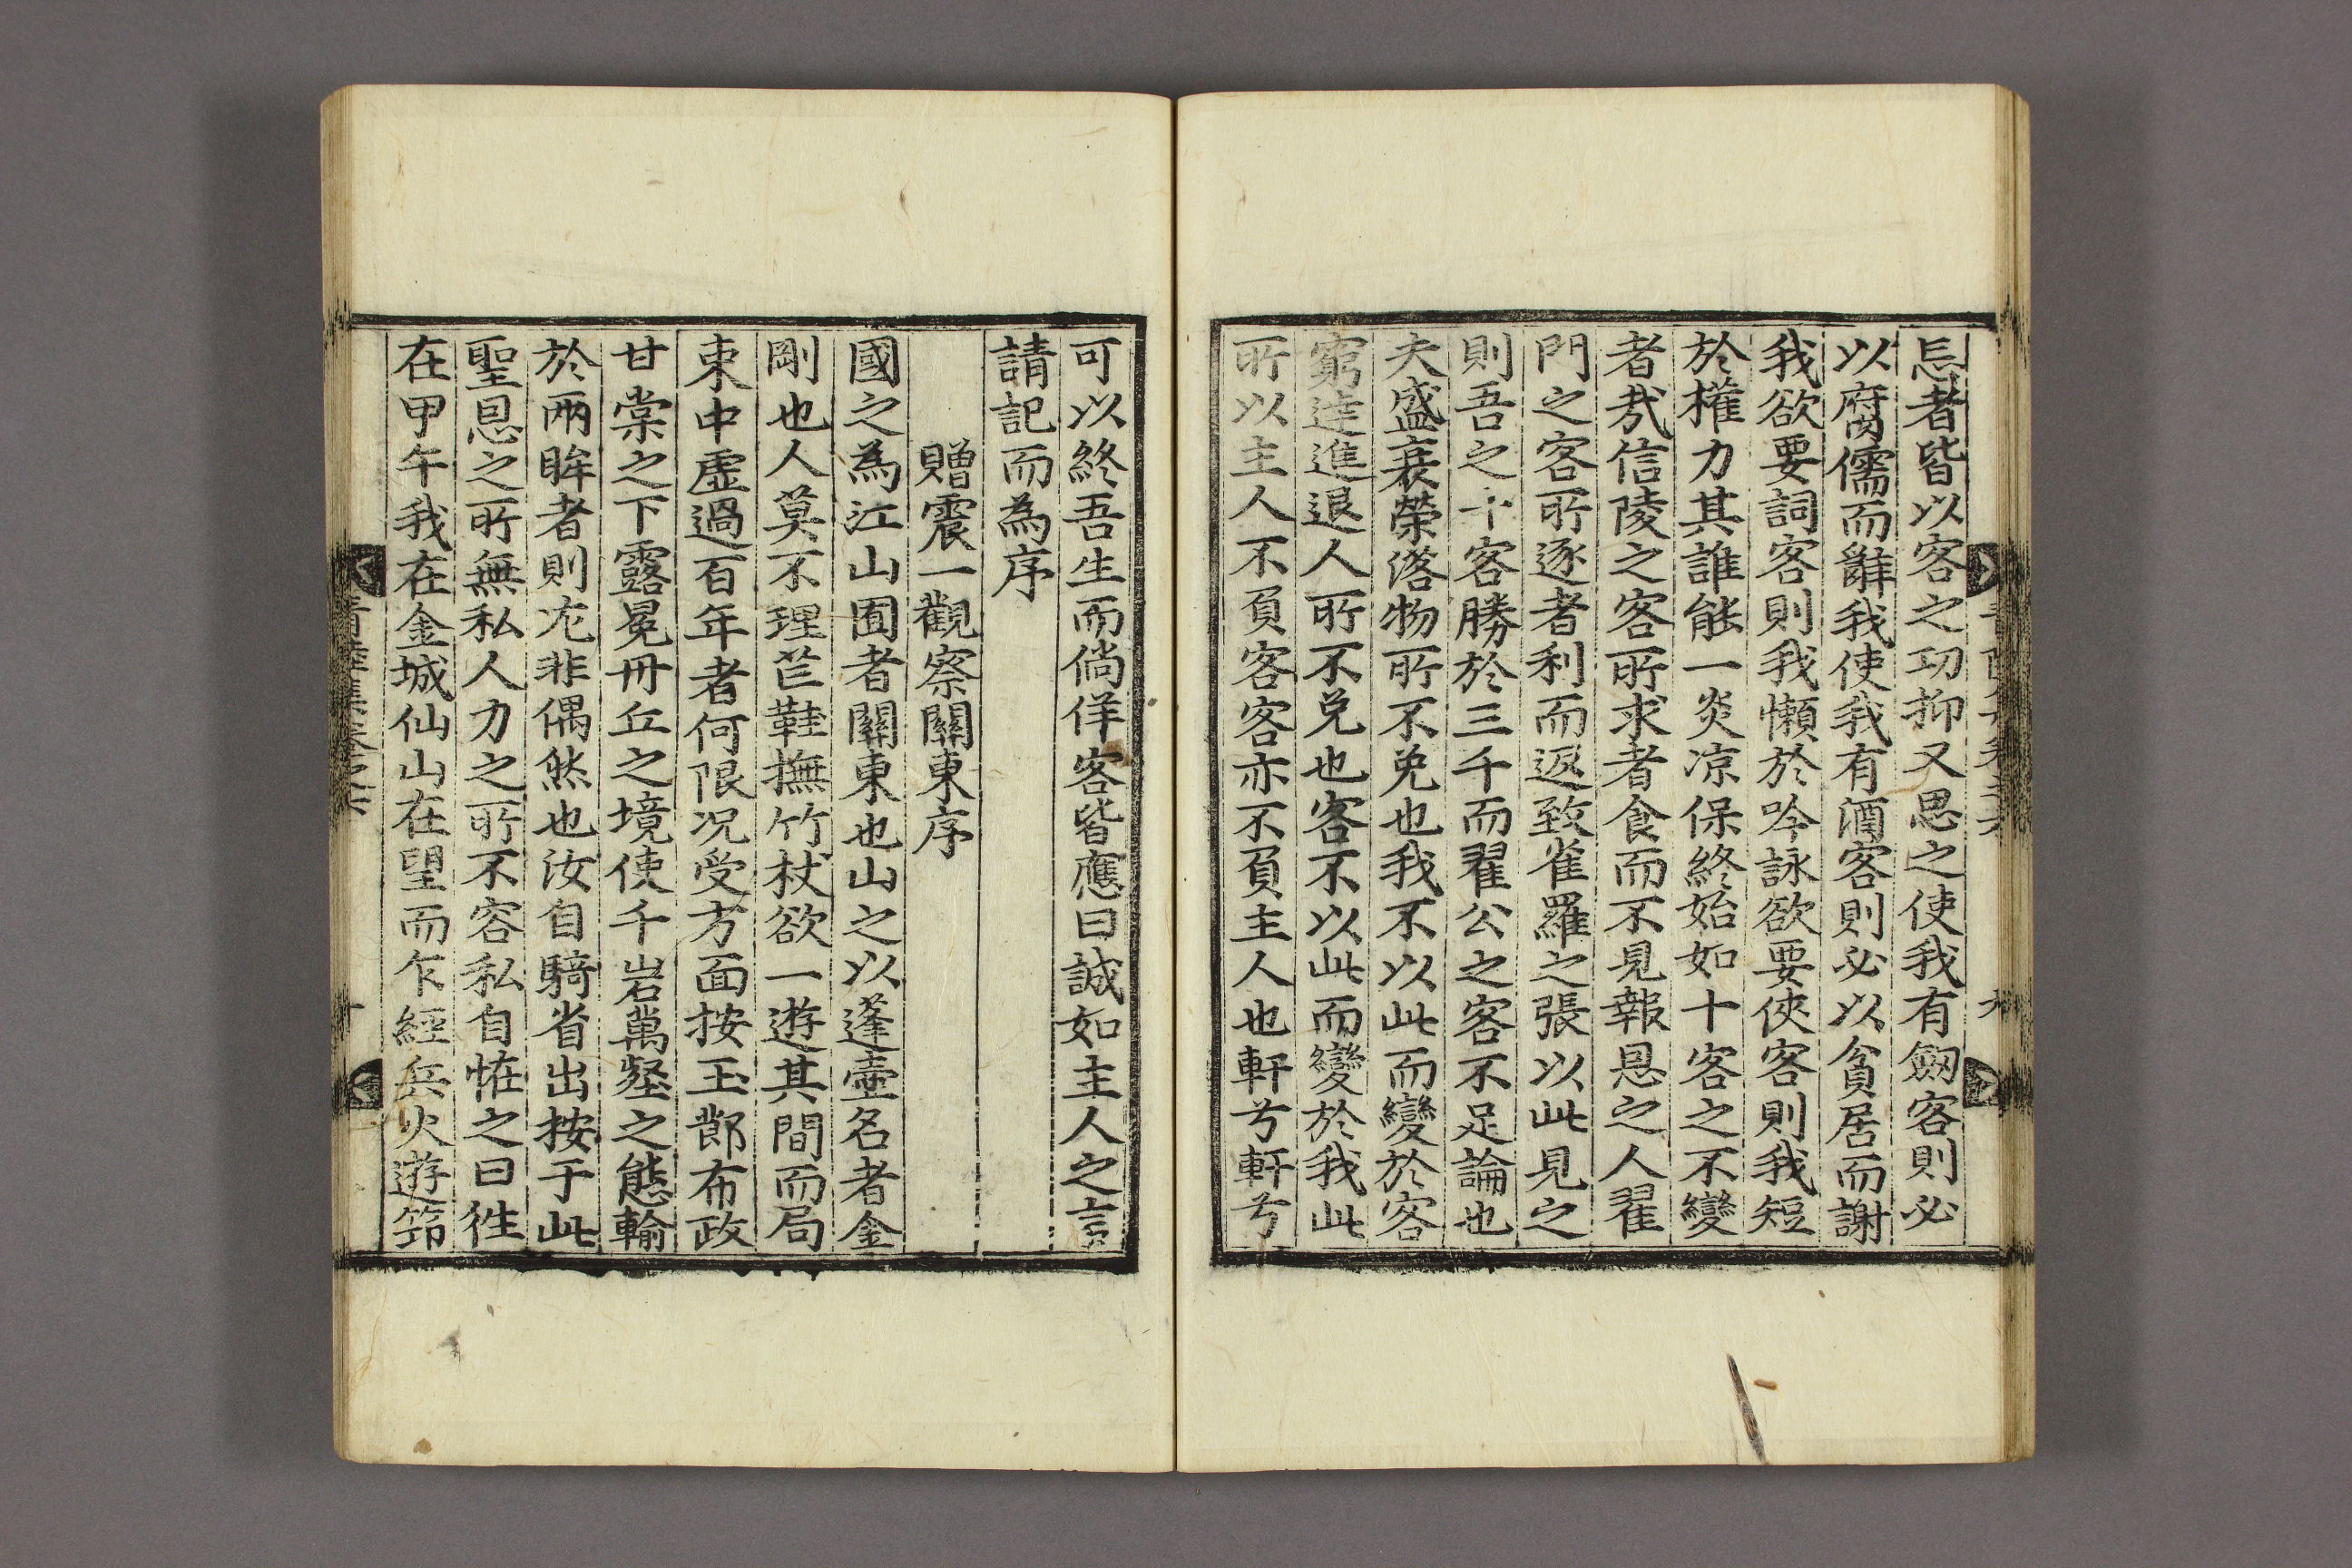 忘者皆以客之功抑又思之使我有劔客則必
以腐儒而辭我使我有酒客則必以貧居而謝
我欲要詞客則我懶於吟詠欲要俠客則我短
於權力其誰能一炎凉保終始如十客之不變
者㢤信陵之客所求者食而不見報恩之人翟
門之客所逐者利而返致雀羅之張以此見之
則吾之十客勝於三千而翟公之客不足論也
夫盛衰榮落物所不免也我不以此而變於客
窮達進退人所不免也客不以此而變於我此
所以主人不負客客亦不負主人也軒兮軒兮
九
可以終吾生而倘佯客皆應曰誠如主人之言
請記而為序
贈震一觀察關東序
國之為江山囿者關東也山之以蓬壺名者金
剛也人莫不理芒鞋撫竹杖欲一遊其間而局
束中虛過百年者何限况受方面按玉節布政
甘棠之下露冕丹丘之境使千岩萬壑之態輸
於兩眸者則尤非偶然也汝自騎省出按于此
聖恩之所無私人力之所不容私自恠之曰徃
在甲午我在金城仙山在望而乍經兵火遊筇
靑陸集卷之六
十